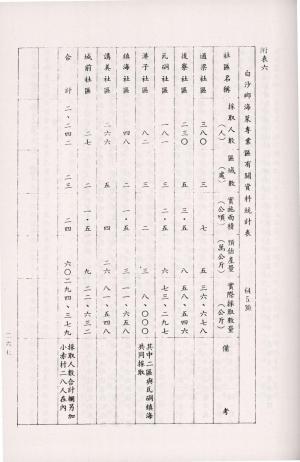 附表六
白沙鄉海菜專業區有關資料統計表
社區名稱 採取人數(人) 區域數(處) 實施面積(公頃) 預估產量(萬公斤) 實際採取數量(公斤) 備考
通梁社區 三八〇 七 五 三六、六七八
後寮社區 二三〇 五 三.五 八
瓦硐社區 一八一 三 五 六 七三、二九七
港子社區 八二 三 二 三 八、〇〇〇 其中二區與瓦硐鎮海共同採取
鎮海社區 四八 二 一.五 三
講美社區 二六六 五 四 二六 八一、五四八
城前社區 二七 二 一.五 九 二二、六三二
合計 二三 二四 六〇 二九四、三七九 採取人數合計欄另加小赤村二八人在內